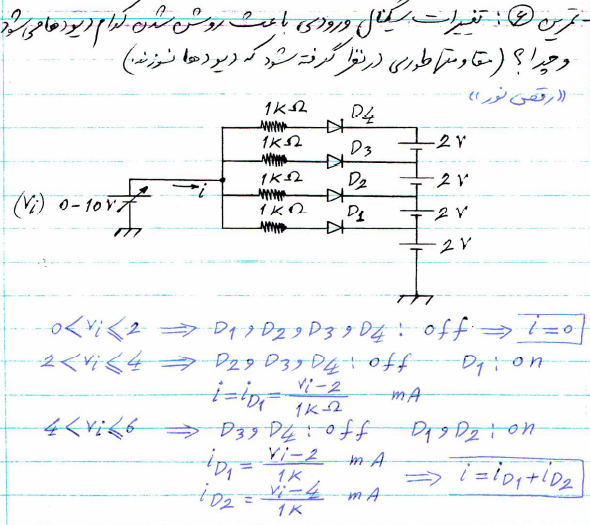 - تمرین ⑥: تغییرات سیگنال ورودی باعث روشن شدن کدام دیودها می‌شود
و چرا؟ (مقاومتها طوری در نظر گرفته شود که دیودها نسوزند)
«رقص نور»
1kΩ D4
2V
1kΩ D3
2V
1kΩ D2
(Vi) 0-10V i
2V
1kΩ D1
2V
0<Vi⩽2 ⟹ D1 و D2 و D3 و D4 : off ⟹ i=0
2<Vi⩽4 ⟹ D2 و D3 و D4 : off D1 : on
i=iD1= Vi-2 / 1kΩ mA
4<Vi⩽6 ⟹ D3 و D4 : off D1 و D2 : on
iD1 = Vi-2 / 1K mA ⟹ i=iD1+iD2
iD2 = Vi-4 / 1K mA